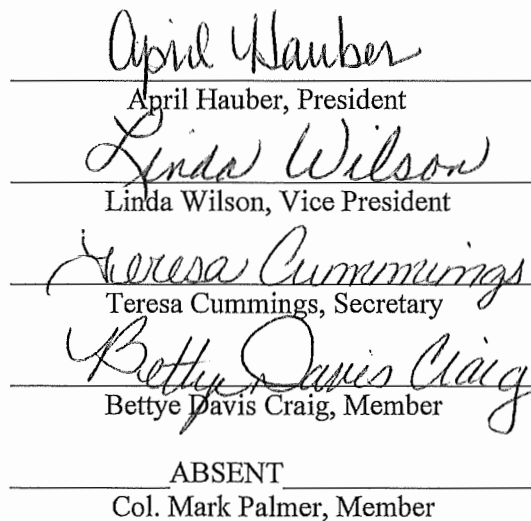 April Hauber
April Hauber, President
Linda Wilson
Linda Wilson, Vice President
Teresa Cummings
Teresa Cummings, Secretary
Bettye Davis Craig
Bettye Davis Craig, Member
ABSENT
Col. Mark Palmer, Member